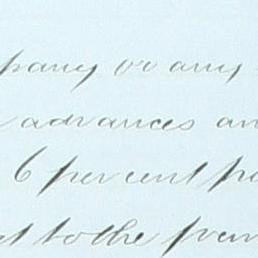 pany or any
advances an
6 per cent pe
t to the pern